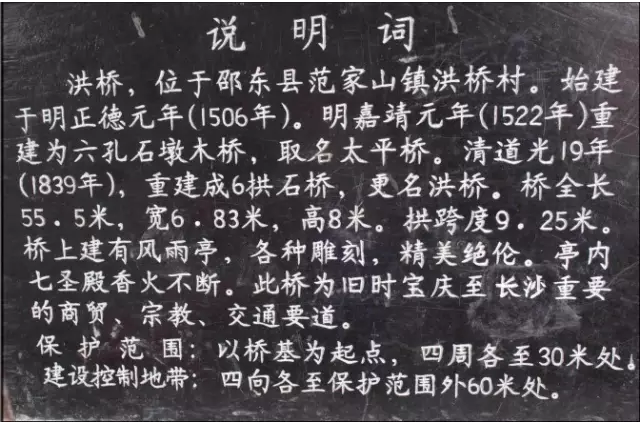 说明词
洪桥，位于邵东县范家山镇洪桥村。始建
于明正德元年(1506年)。明嘉靖元年(1522年)重
建为六孔石墩木桥，取名太平桥。清道光19年
(1839年)，重建成6拱石桥，更名洪桥。桥全长
55．5米，宽6．83米，高8米。拱跨度9．25米。
桥上建有风雨亭，各种雕刻，精美绝伦。亭内
七圣殿香火不断。此桥为旧时宝庆至长沙重要
的商贸、宗教、交通要道。
保护范围：以桥基为起点，四周各至30米处。
建设控制地带：四向各至保护范围外60米处。